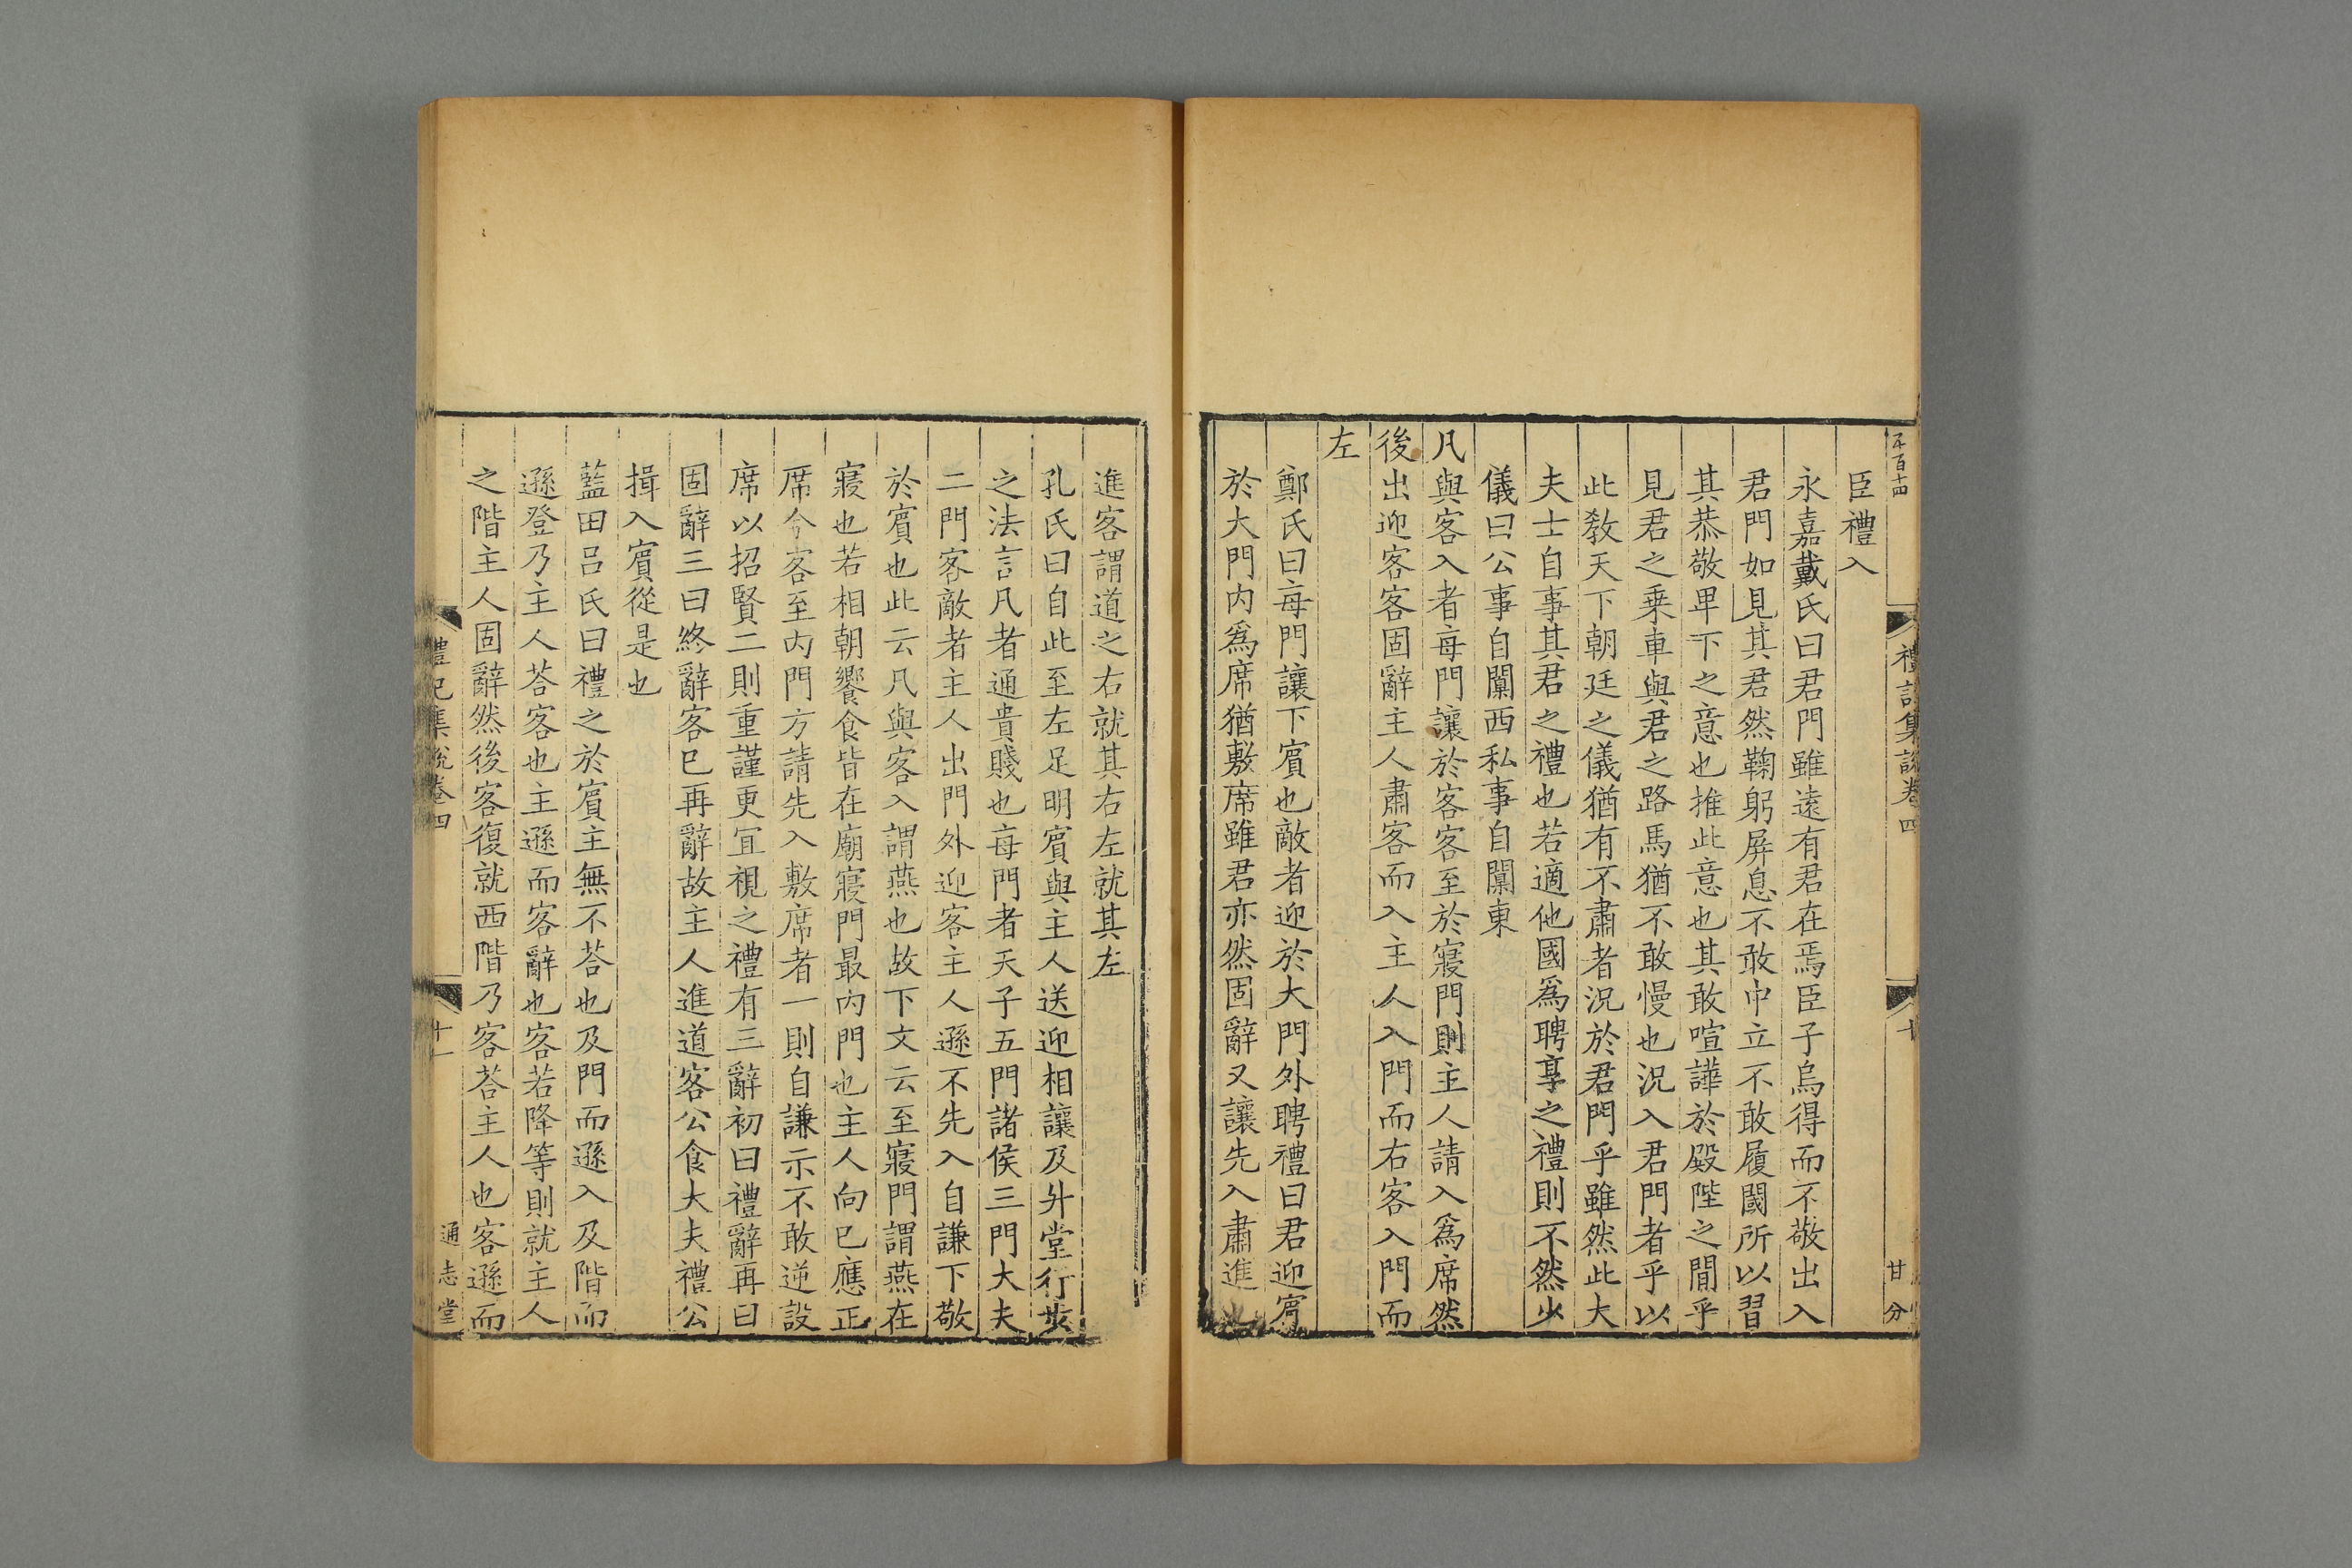 禮記集說卷四
甘分
臣禮入
永嘉戴氏曰君門雖遠有君在焉臣子烏得而不敬出入
君門如見其君然鞠躬屏息不敢中立不敢履閾所以習
其恭敬卑下之意也推此意也其敢喧譁於殿陛之間乎
見君之乗車與君之路馬猶不敢慢也況入君門者乎以
此敎天下朝廷之儀猶有不肅者況於君門乎雖然此大
夫士自事其君之禮也若適他國爲聘享之禮則不然少
儀曰公事自闑西私事自闑東
凡與客入者毎門讓於客客至於寢門則主人請入爲席然
後出迎客客固辭主人肅客而入主人入門而右客入門而
左
鄭氏曰毎門讓下賓也敵者迎於大門外聘禮曰君迎賓
於大門内爲席猶敷席雖君亦然固辭又讓先入肅進也
進客謂道之右就其右左就其左
孔氏曰自此至左足明賓與主人送迎相讓及升堂行步
之法言凡者通貴賤也毎門者天子五門諸侯三門大夫
二門客敵者主人出門外迎客主人遜不先入自謙下敬
於賓也此云凡與客入謂燕也故下文云至寢門謂燕在
寢也若相朝饗食皆在廟寢門最内門也主人向已應正
席今客至内門方請先入敷席者一則自謙示不敢逆設
席以招賢二則重謹更宜視之禮有三辭初曰禮辭再曰
固辭三曰終辭客已再辭故主人進道客公食大夫禮公
揖入賓從是也
藍田呂氏曰禮之於賓主無不荅也及門而遜入及階而
遜登乃主人荅客也主遜而客辭也客若降等則就主人
之階主人固辭然後客復就西階乃客荅主人也客遜而
禮記集說卷四
十一
通志堂